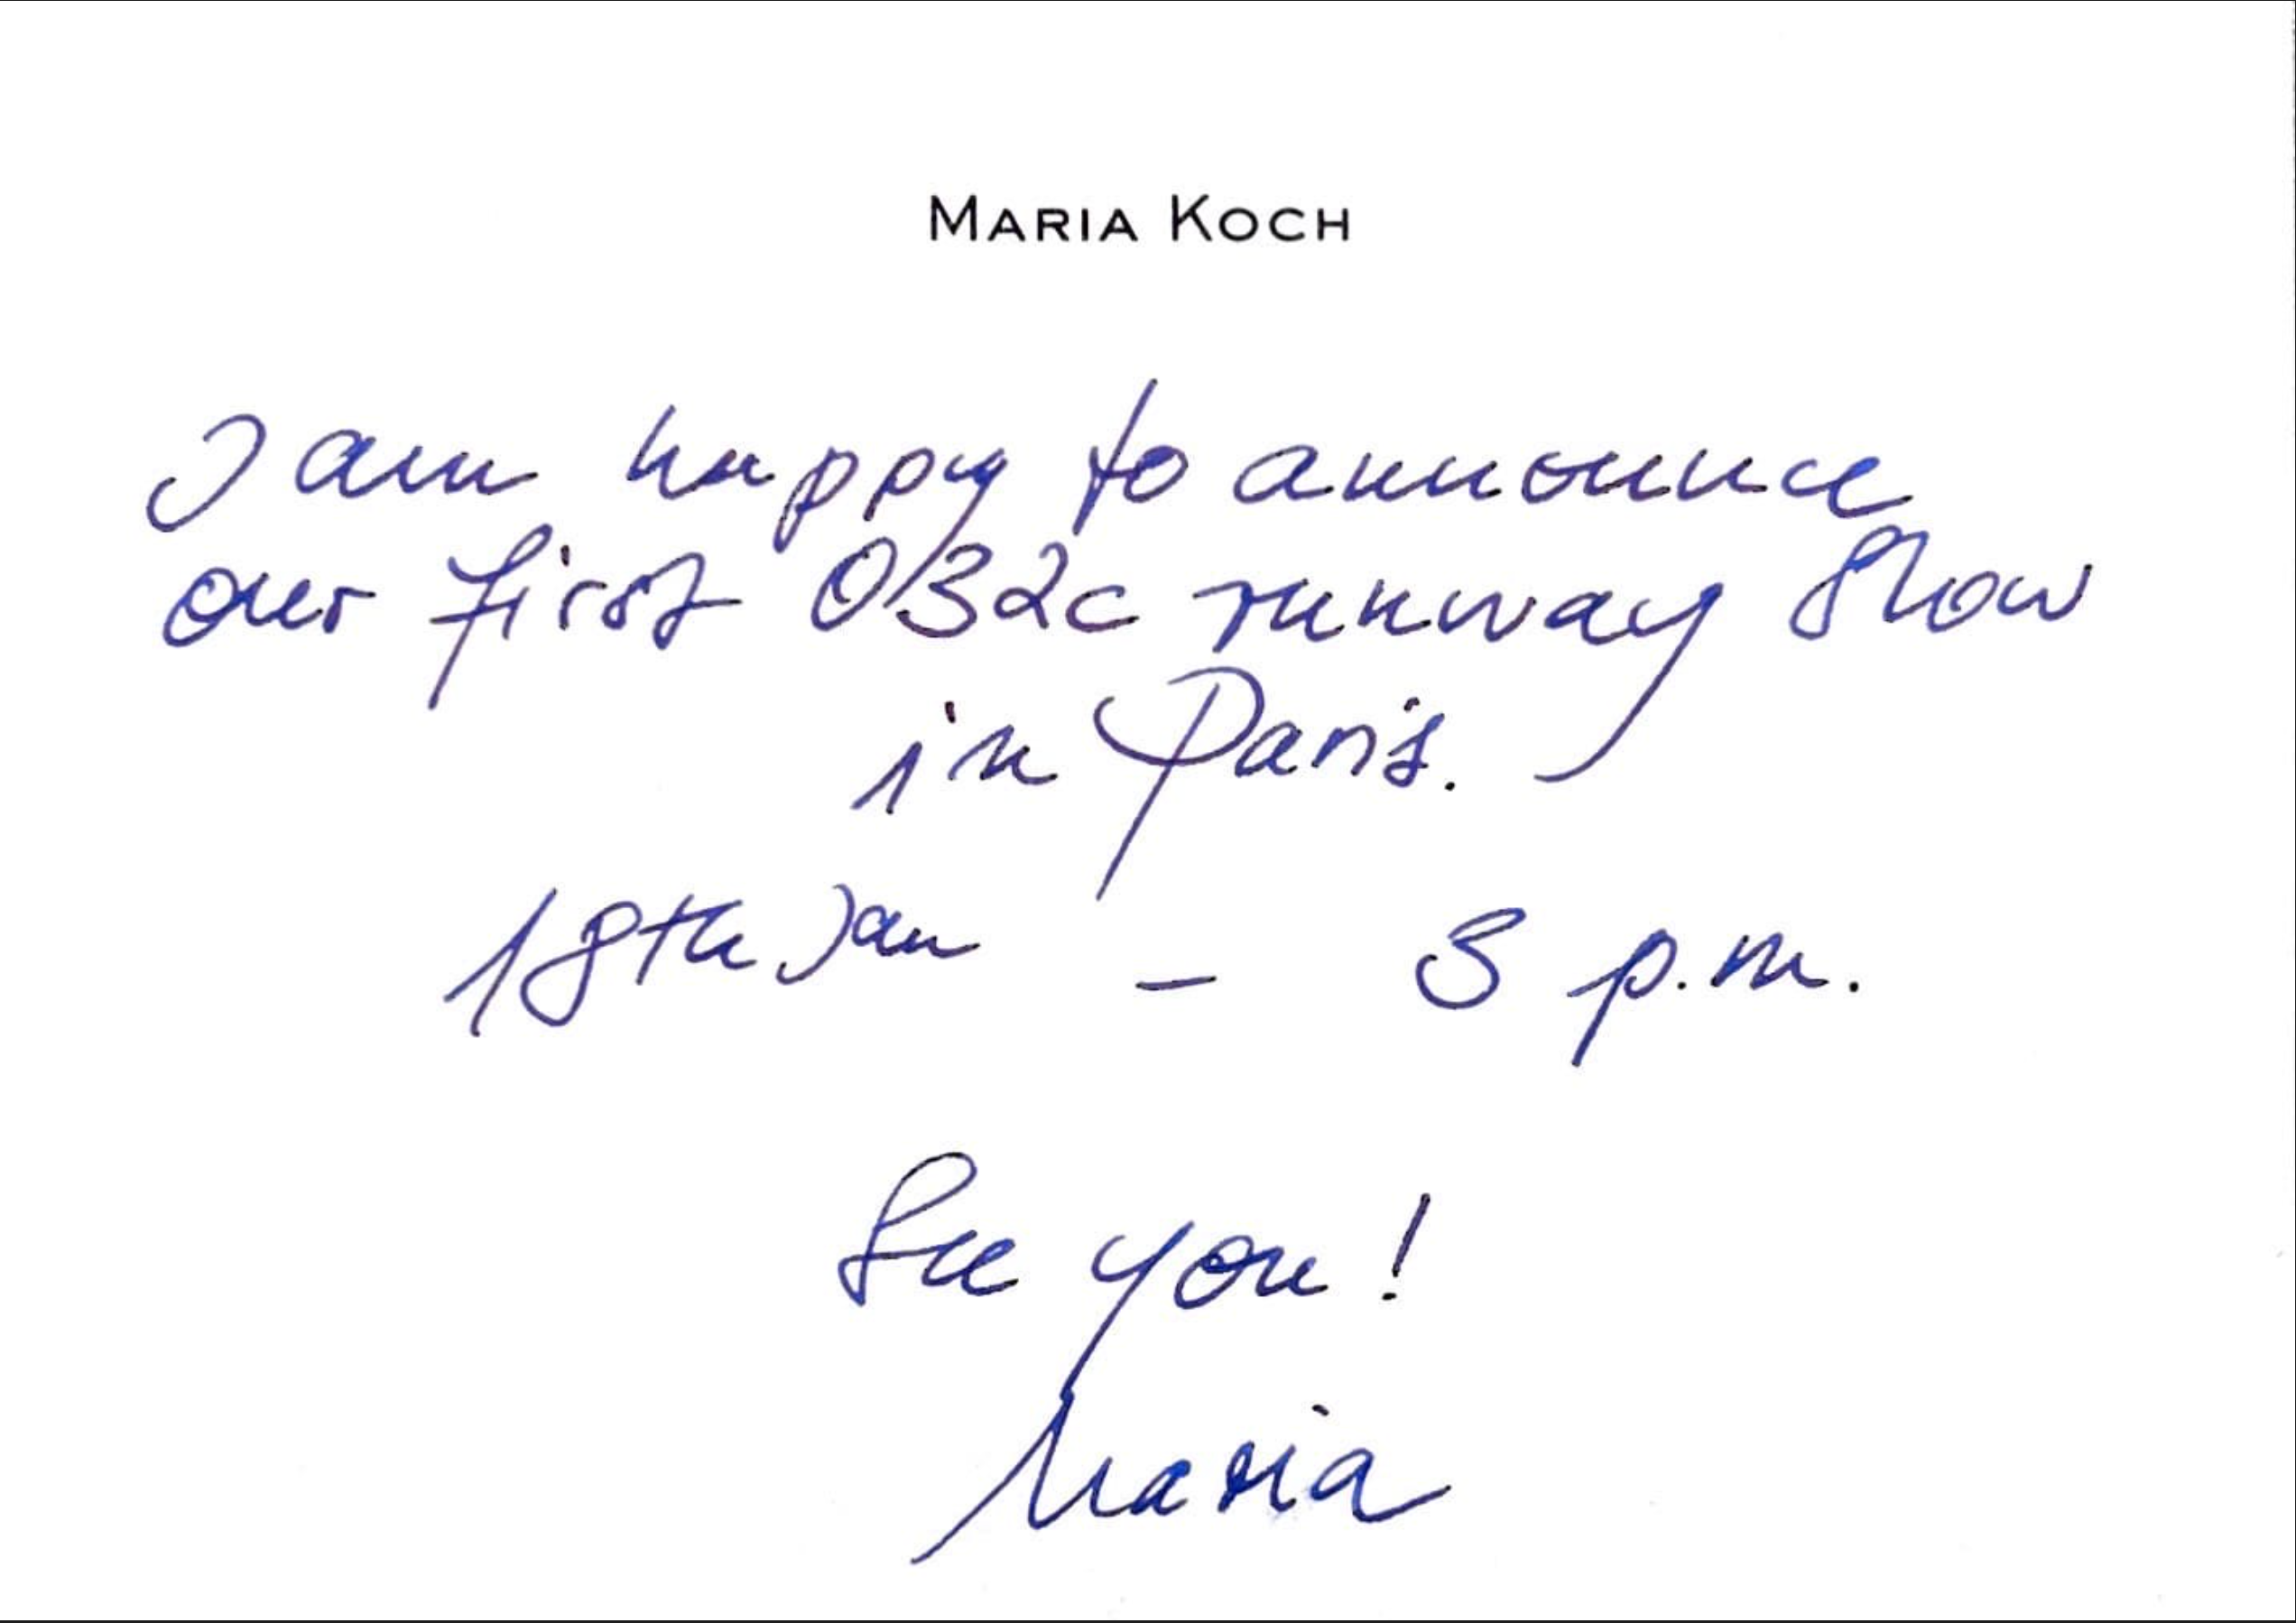 MARIA KOCH
I am happy to announce
our first 032c runway show
in Paris.
18th Jan – 3 p.m.
See you!
Maria